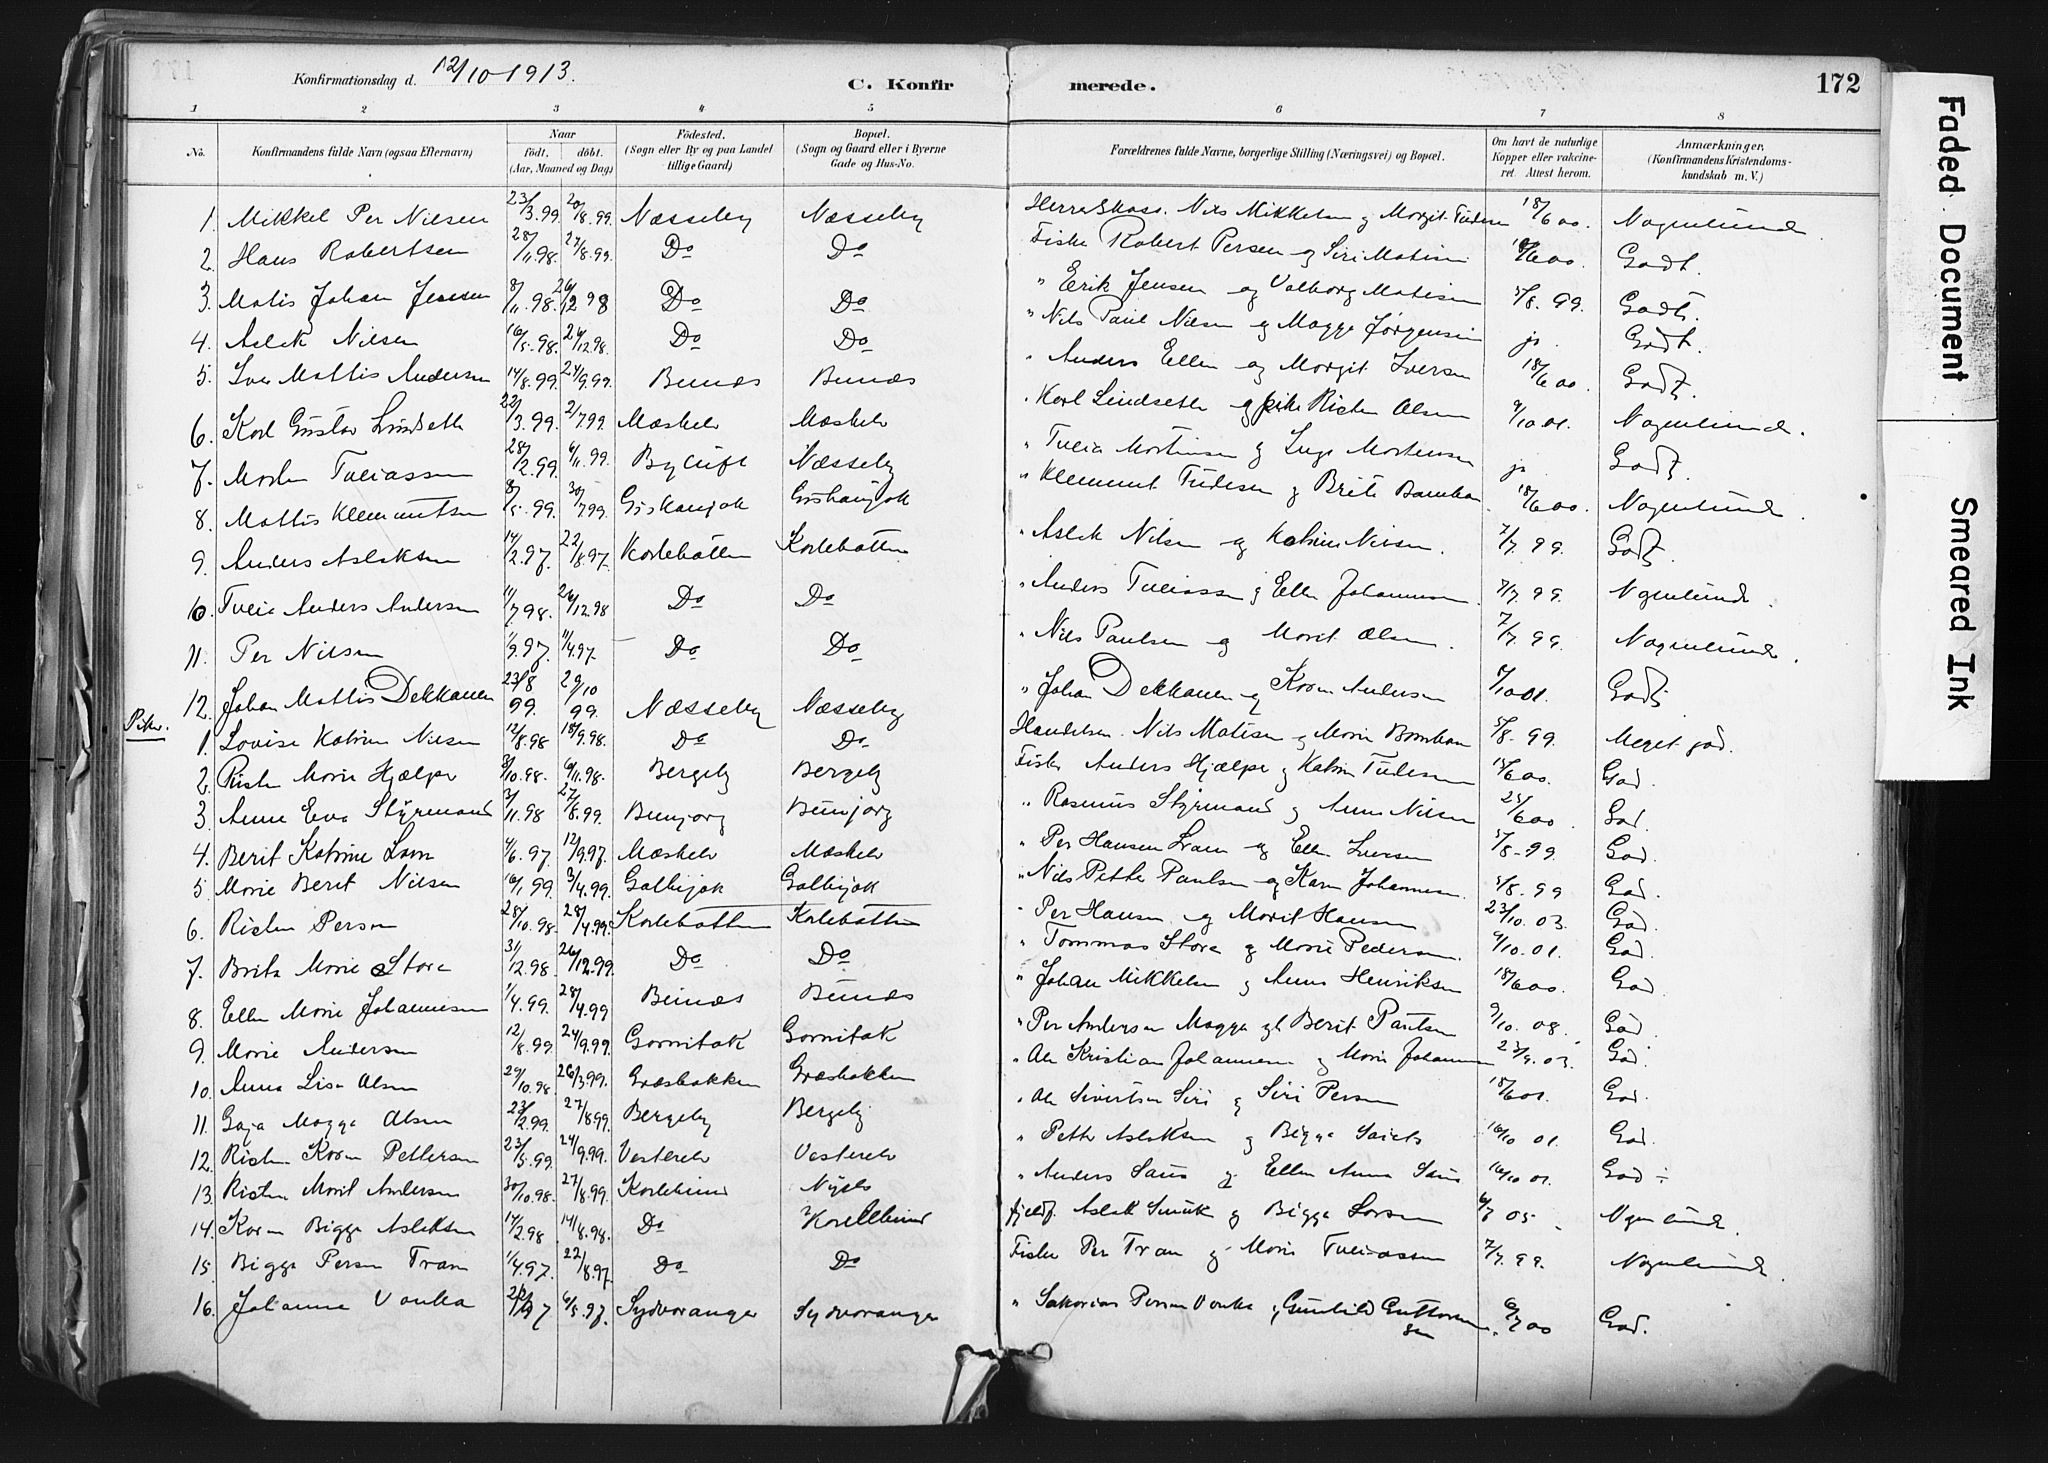 Konfirmationsdag d. 12/10 1913.
C. Konfirmerede.
172
1 2 3 4 5 6 7 8
No.
Konfirmandens fulde Navn (ogsaa Efternavn)
Naar födt. döbt. (Aar, Maaned og Dag)
Födested. (Sogn eller By og paa Landet tillige Gaard)
Bopæl. (Sogn og Gaard eller i Byerne Gade og Hus-No.
Forældrenes fulde Navne, borgerlige Stilling (Næringsvei) og Bopæl.
Om havt de naturlige Kopper eller vakcineret. Attest herom.
Anmærkninger, (Konfirmandens Kristendomskundskab m. V.)
1. Mikkel Per Nilsen 23/3.99. 20/8.99. Næsseby Næsseby Nils Mikkelsen og Margit 18/6 00. Nogenlunde
2. Hans Robertsen 28/11.98. 27/8.99. Do Do Fisker Robert Persen og Siri Matisen 18/6 00. Godt.
3. Matis Johan Jensen 8/11.98. 26/12 98 Do Do " Erik Jensen og Valborg Matisen 5/8. 99. Godt.
4. Aslak Nilsen 16/5.98. 26/12.98. Do Do " Nils Paul Nilsen og Magga Jørgensen ja. Godt.
5. Iver Mattis Andersen 14/8.99. 24/9.99. Bunæs Bunæs " Anders Ellen og Margit Iversen 18/6 00. Godt.
6. Karl Gustav Lindseth 22/3.99. 2/7 99 Mæskelv Mæskelv " Karl Lindseth og Risten Olsen 9/10 01. Nogenlunde.
7. Morten Tuliassen 28/2.99. 6/11.99. Byluft Næsseby " Tulia Mortensen og Inga Mortensen ja Godt.
8. Mattis Klemmetsen 8/5.99. 30/7 99. Giskanjok Gishanjok " Klemmet Tudesen og Brita 18/6 00. Nogenlunde
9. Anders Aslaksen 14/2.97. 22/8.97. Karlebotten Karlebotten " Aslak Nilsen og Katrine Nilsen. 7/7. 99. Godt.
10. Tulia Anders Andersen 11/7 98. 26/12.98 Do Do " Anders Tuliassen og Ellen Johannesen. 7/7. 99. Nogenlunde.
11. Per Nilsen 1/9.97. 11/4.97. Do Do " Nils Paulsen og Marit Olsen. 7/7. 99. Nogenlunde.
12. Johan Mattis Dekkanen 23/8 99. 29/10 99. Næsseby Næsseby " Johan Dekkanen og Karen Andersen 9/10 01. Godt
Piker.
1. Lovise Katrine Nilsen 12/8.98 18/9.98. Do Do Handelsm. Nils Matisen og Marie 5/8. 99. Meget god.
2. Risten Marie Hjælpe 8/10.98. 6/11.98. Bergeby Bergeby Fisker Anders Hjælpe og Katrine Tudesen 18/6 00. God.
3. Anne Eva Styrmand 3/11.98 27/8.99. Bunjorg Bunjorg " Rasmus Styrmand og Anne Nilsen 25/6 00. God.
4. Berit Katrine Lam 4/6.97 12/9.97. Mæskelv Mæskelv " Per Hansen og Ellen Iversen 5/8-99. God.
5 Marie Berit Nilsen 16/1 99. 3/4.99. Galbijok Galbijok " Nils Petter Paulsen og Karen Johannesen. 5/8. 99 God.
6. Risten Persen 28/10.98. 28/4.99. Karlebotten Karlebotten " Per Hansen og Marit Hansen 23/10.03. God.
7. Brita Marie Stora 31/12.98. 26/12.99. Do Do " Tommas Stora og Marie Pedersen. 9/10.01. God.
8. Ellen Marie Johannesen 1/4.99. 28/4.99 Bunæs Bunæs " Johan Mikkelsen og Anna Henriksen 18/6 00. God.
9. Marie Andersen 12/8.99 24/9.99. Gornitak Gornitak " Per Andersen Magga og Berit Paulsen 9/10. 08. God
10. Anna Lisa Olsen 29/10.98. 26/3.99. Græsbakken Græsbakken " Ole Kristian Johannesen og Marie Johannesen 23/9.03. God
11. Gaja Magga Olsen 23/2.99. 27/8.99. Bergeby Bergeby " Ole Sivertsen Siri og Siri Persen 18/6 01. God.
12. Risten Karen Pettersen 23/5.99. 24/9.99. Vesterelv Vesterelv " Petter Aslaksen og Bigga 16/10 01. God.
13. Risten Marit Andersen 30/10.98. 27/8.99. Karlebund Nyelv " Anders Saus og Ellen Anna Saus 16/10 01. God ÷
14. Karen Bigga Aslaksen 14/2.98 14/8.98. Do Karlebund Fjeldf. Aslak Smuk og Bigga Larsen 6/7 05. Nogenlunde.
15. Bigga Persen Tran 1/4.97. 22/8.97. Do Do Fisker Per Tran og Marie Tuliassen 7/7. 99. Nogenlunde.
16. Johanne Vonka 6/5.97. Sydvaranger Sydvaranger " Sakarias Persen Vonka og Gunhild Guttormsen. 6/7 00 God.
Faded Document
Smeared Ink